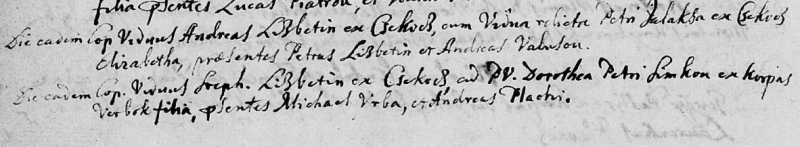 filia pntes Lucas Piatrou, et
Die eadem Cop. Viduus Andreas Lisbetin ex Csekocz, cum Vidua relicta Petri Jalaksa ex Csekocz
Elizabetha, praesentes Petrus Lisbetin et Andreas Vabusou.
Die eadem Cop. Viduus Steph. Lisbetin ex Csekocz ad P.V. Dorothea Petri Simkou ex Korpas
Verbok filia, pntes Michael Vrba, et Andreas Plachi.